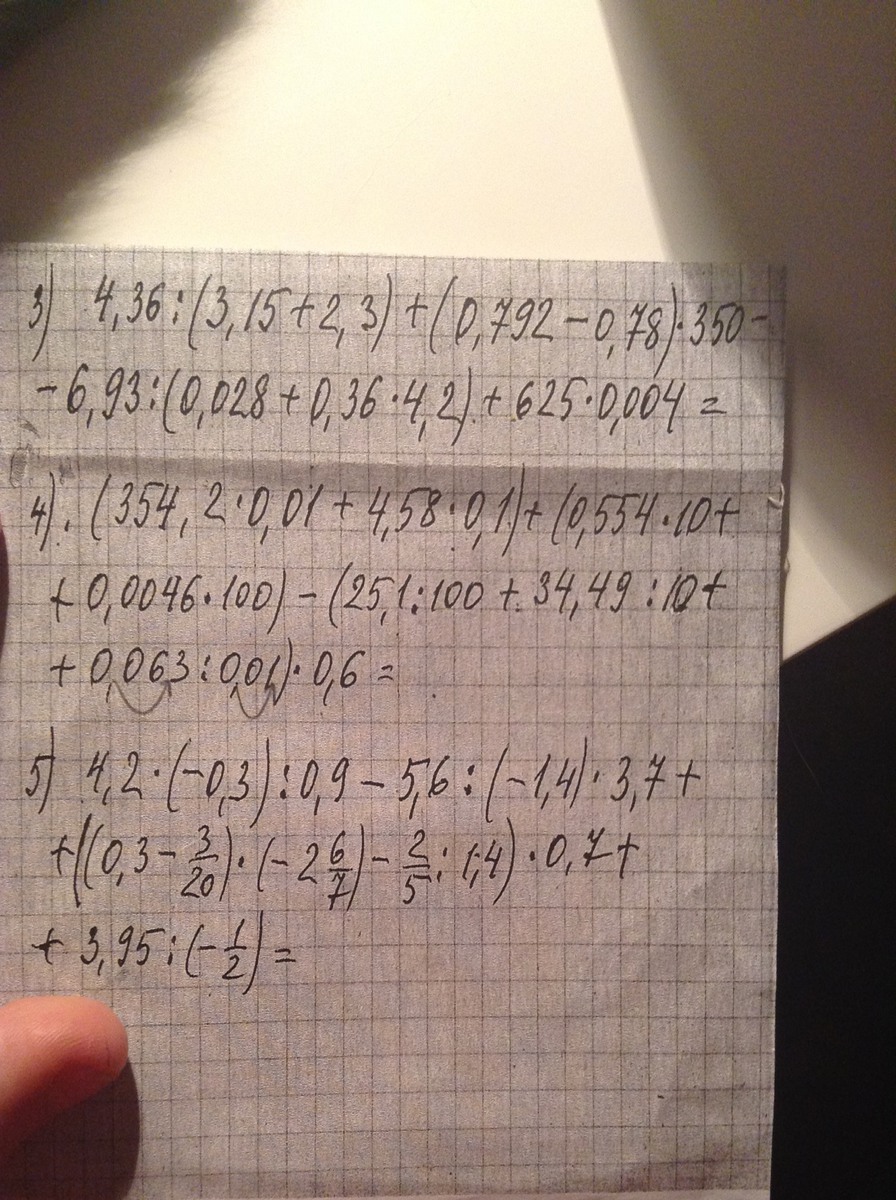 3) 4,36:(3,15+2,3)+(0,792-0,78)·350-
-6,93:(0,028+0,36·4,2)+625·0,004=
4). (354,2·0,01+4,58·0,1)+(0,554·10+
+0,0046·100)-(25,1:100+34,49:10+
+0,063:0,01)·0,6=
5) 4,2·(-0,3):0,9-5,6:(-1,4)·3,7+
+((0,3-3/20)·(-2 6/7)-2/5:1,4)·0,7+
+3,95:(-1/2)=